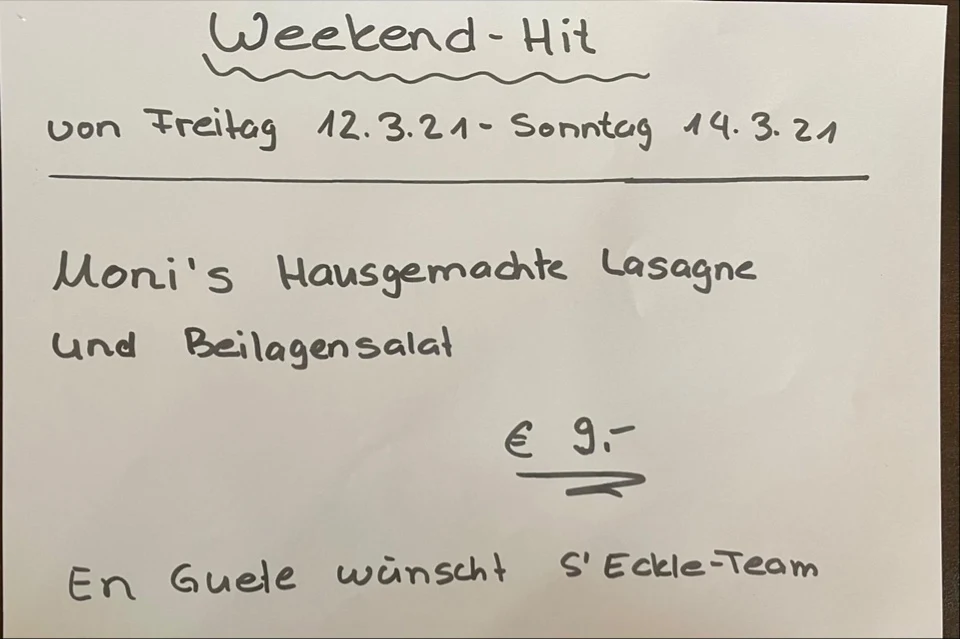 Weekend-Hit
von Freitag 12.3.21 - Sonntag 14.3.21
Moni's Hausgemachte Lasagne
und Beilagensalat
€ 9.-
En Guete wünscht S'Eckle-Team